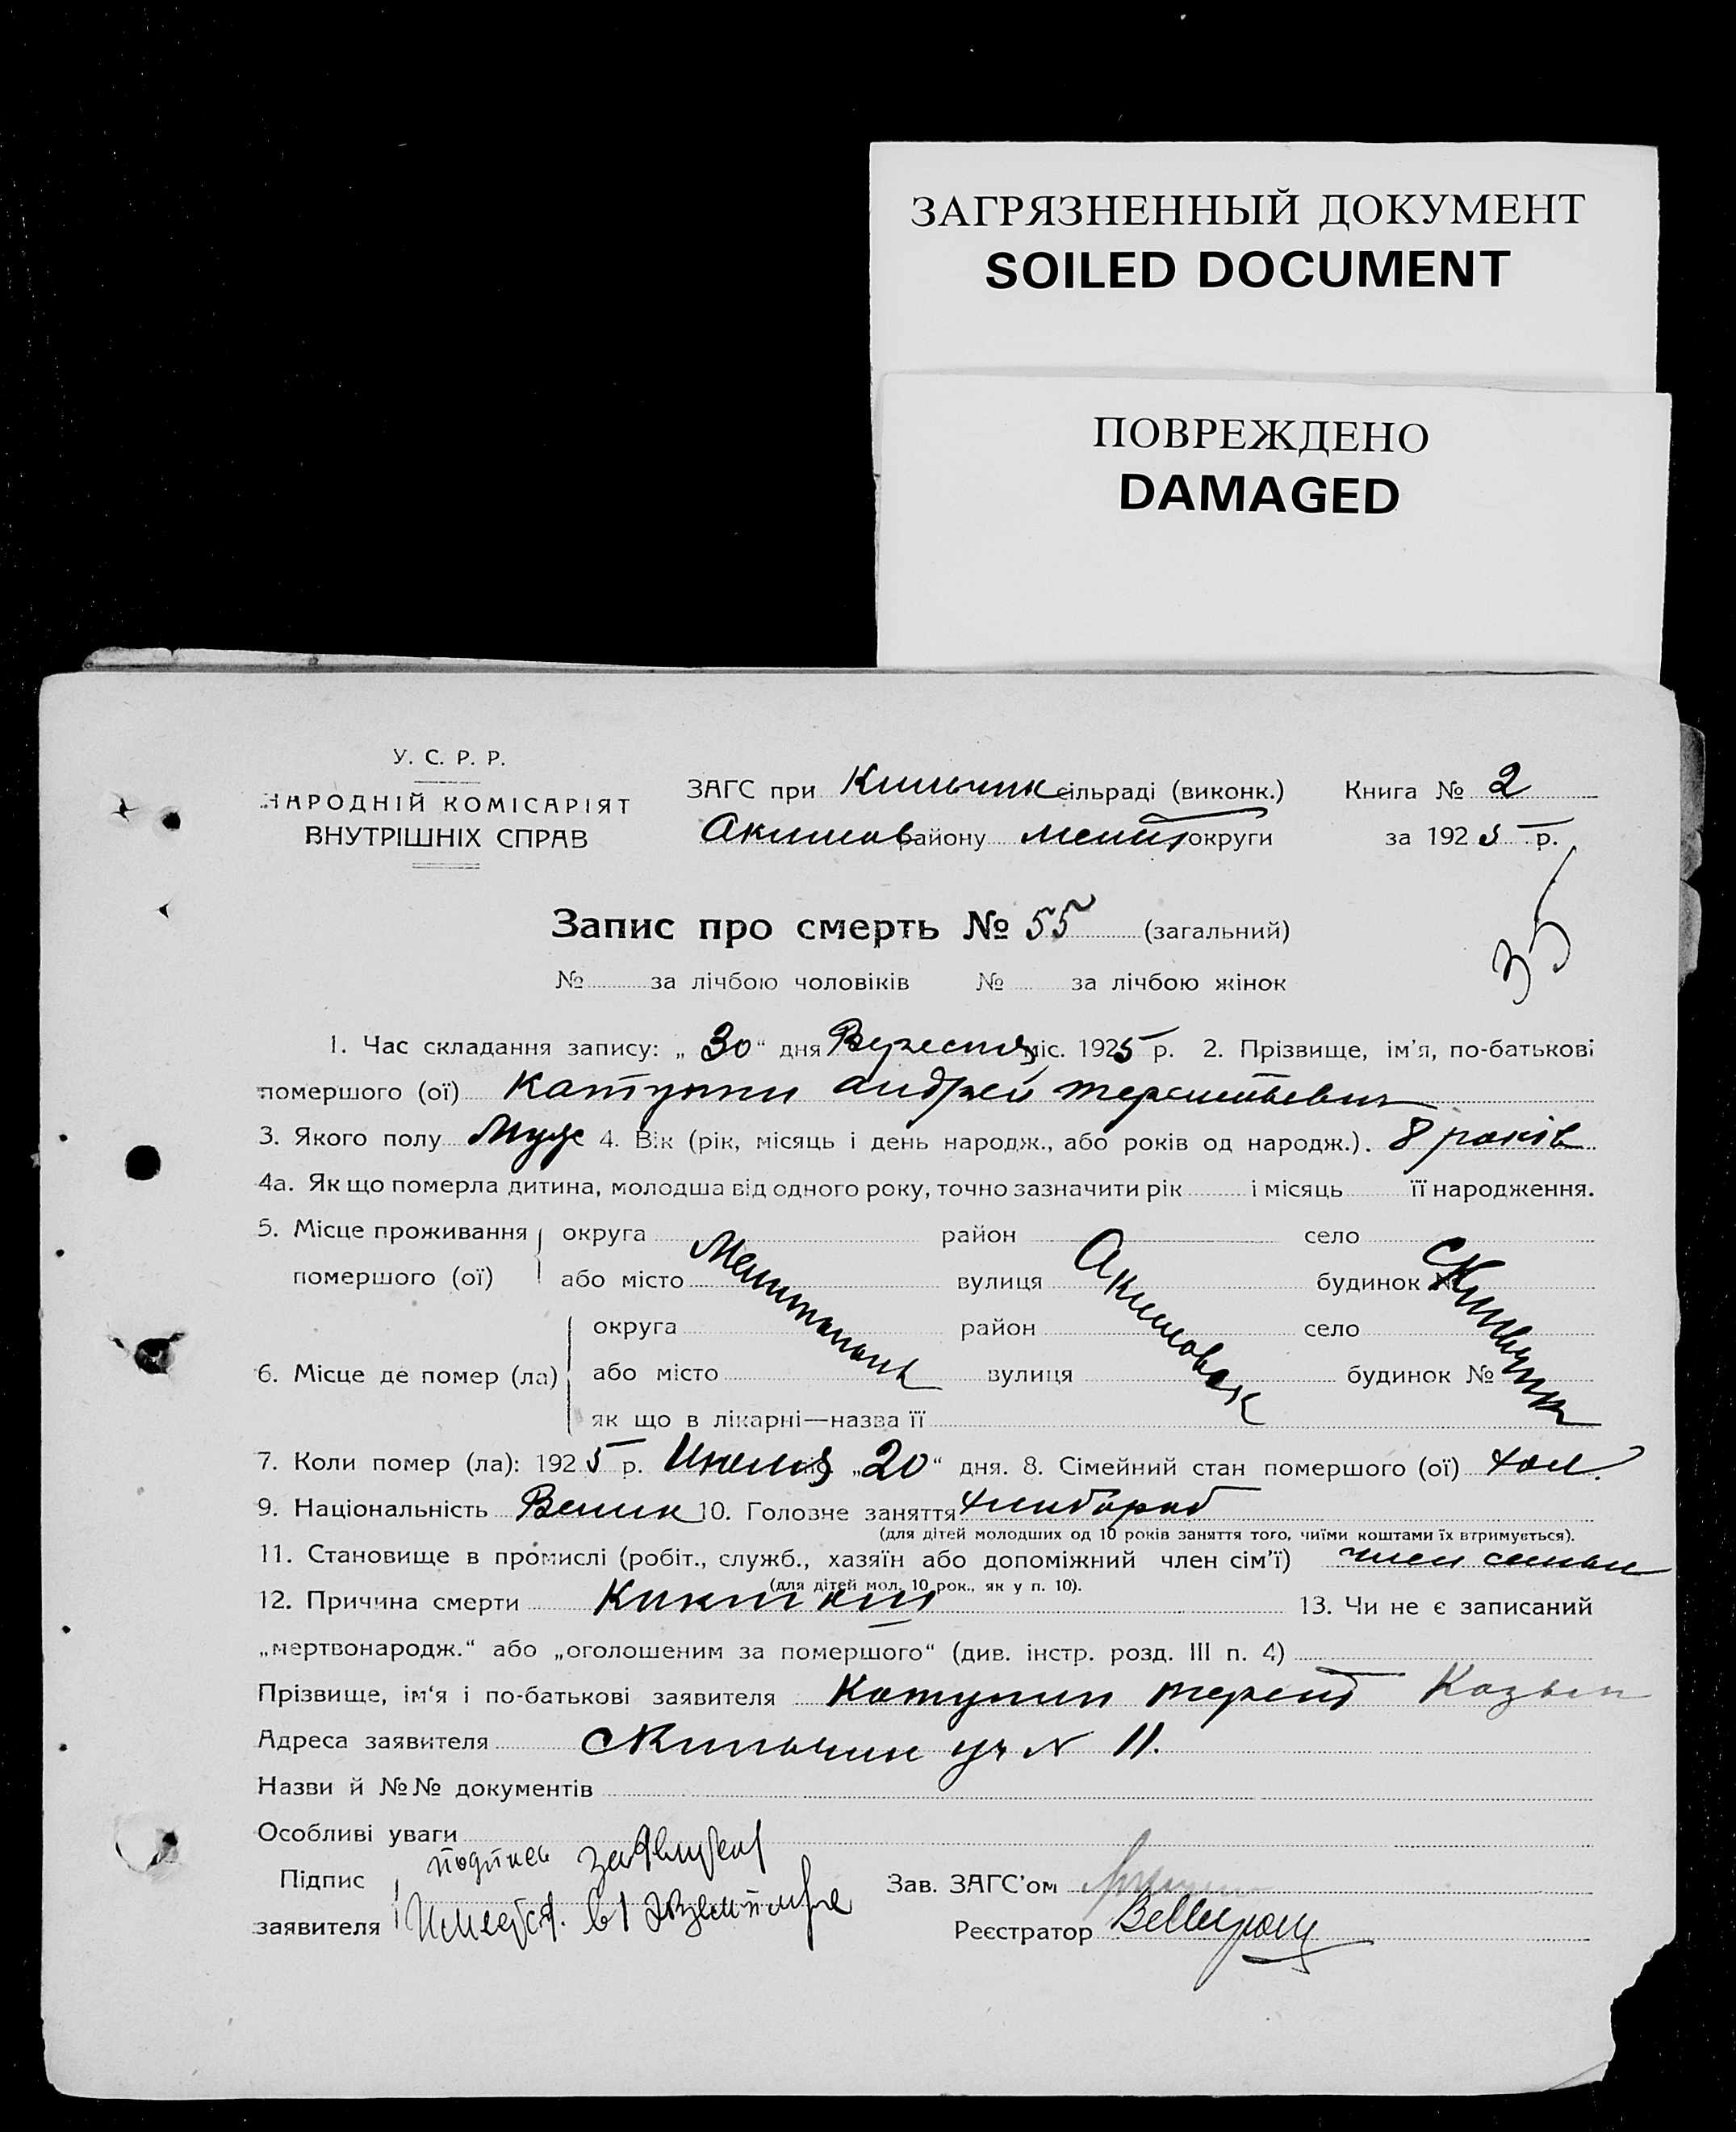 ЗАГРЯЗНЕННЫЙ ДОКУМЕНТ
SOILED DOCUMENT
ПОВРЕЖДЕНО
DAMAGED
У. С. Р. Р.
НАРОДНІЙ КОМІСАРІЯТ
ВНУТРІШНІХ СПРАВ
ЗАГС при сільраді (виконк.)
Акимов району Мелит округи
Книга № 2
за 1925 р.
35
Запис про смерть № 55 (загальний)
№ за лічбою чоловіків № за лічбою жінок
1. Час складання запису: „ 30 “ дня Вересня міс. 1925 р. 2. Прізвище, ім'я, по-батькові
помершого (ої) Катунин Андрей Терентьевич
3. Якого полу Муж 4. Вік (рік, місяць і день народж., або років од народж.). 8 років
4а. Як що померла дитина, молодша від одного року, точно зазначити рік і місяць її народження.
5. Місце проживання округа район село
помершого (ої) або місто вулиця будинок №
Акимовск
округа район село
6. Місце де помер (ла) або місто вулиця будинок №
як що в лікарні—назва її
7. Коли помер (ла): 1925 р. „20“ дня. 8. Сімейний стан помершого (ої) хол.
9. Національність 10. Головне заняття хлибороб
(для дітей молодших од 10 років заняття того, чиїми коштами їх втримується).
11. Становище в промислі (робіт., служб., хазяїн або допоміжний член сім'ї) член семьи
(для дітей мол. 10 рок., як у п. 10).
12. Причина смерти 13. Чи не є записаний
„мертвонародж.“ або „оголошеним за помершого“ (див. інстр. розд. III п. 4)
Прізвище, ім'я і по-батькові заявителя Катунин Терент
Адреса заявителя № 11.
Назви й №№ документів
Особливі уваги
Підпис подпись заявителя
заявителя Имеется в 1 экземпляре
Зав. ЗАГС'ом
Реєстратор